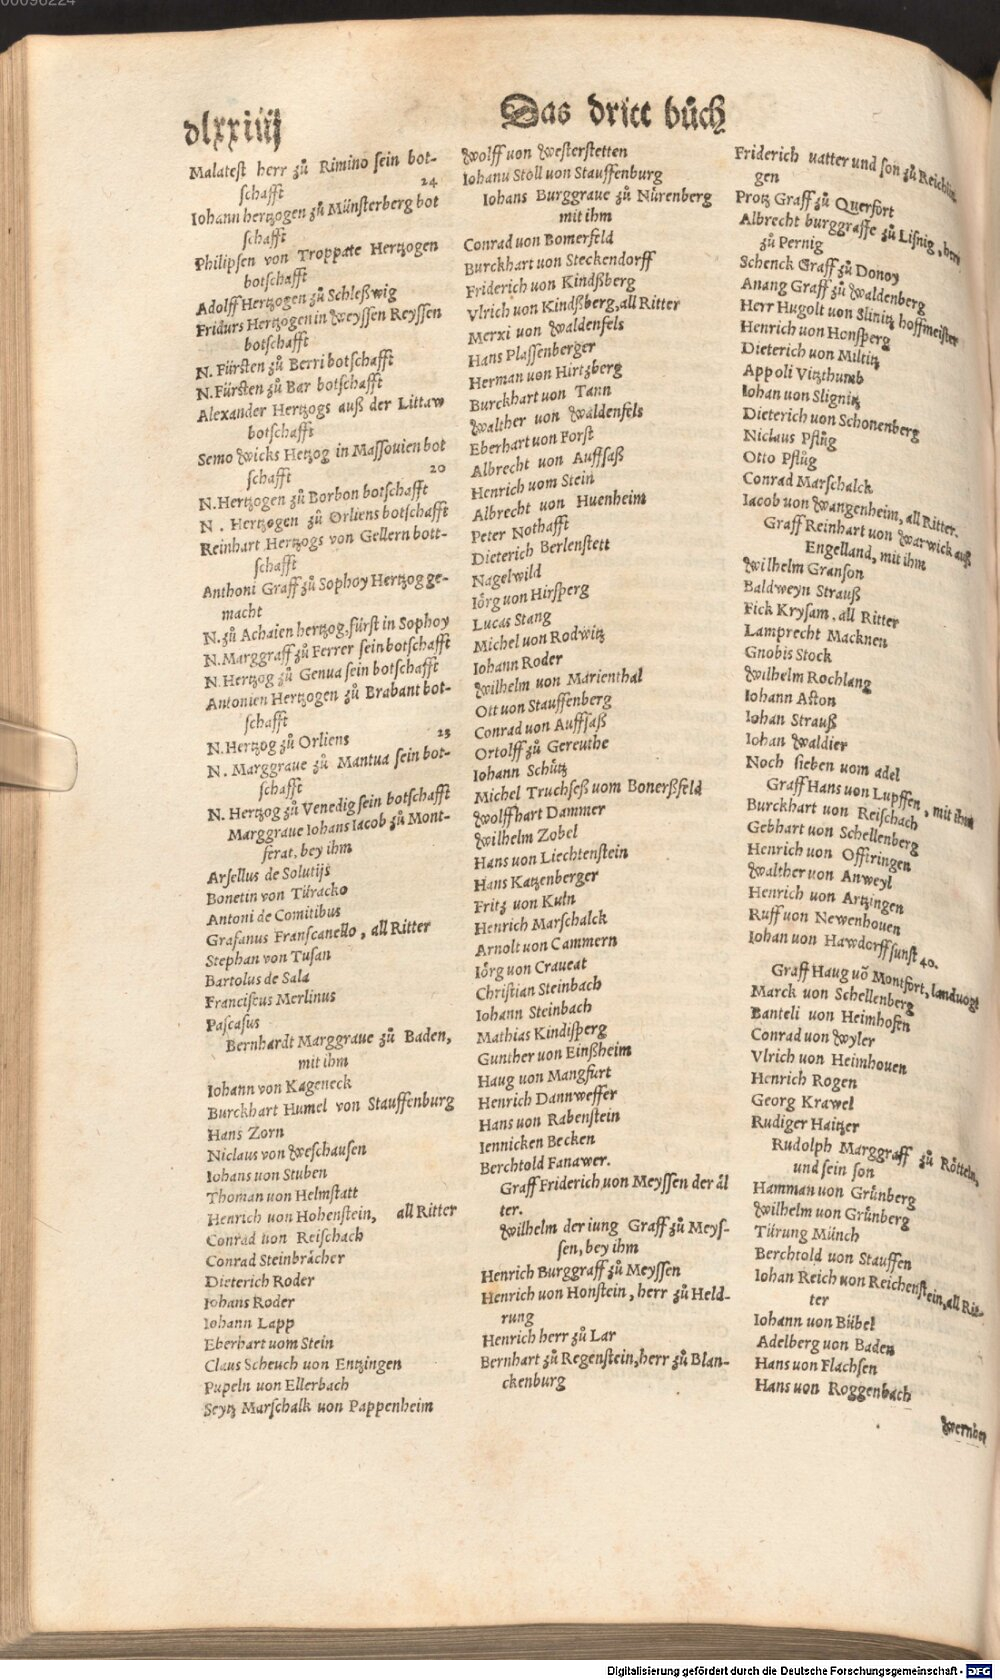 dlxxiiij
Das dritt bůch
Malatest herr zů Rimino sein bot-
schafft 24
Iohann hertzogen zů Münsterberg bot
schafft
Philipsen von Troppate Hertzogen
botschafft
Adolff Hertzogen zů Schleßwig
Fridurs Hertzogen in Weyssen Reyssen
botschafft
N. Fürsten zů Berri botschafft
N. Fürsten zů Bar botschafft
Alexander Hertzogs auß der Littaw
botschafft
Semo Wicks Hetzog in Massouien bot
schafft 20
N. Hertzogen zů Borbon botschafft
N. Hertzogen zů Orliens botschafft
Reinhart Hertzogs von Gellern bott-
schafft
Anthoni Graff zů Sophoy Hertzog ge-
macht
N. zů Achaien hertzog, fürst in Sophoy
N. Marggraff zů Ferrer sein botschafft
N. Hertzog zů Genua sein botschafft
Antonien Hertzogen zů Brabant bot-
schafft
N. Hertzog zů Orliens 23
N. Marggraue zů Mantua sein bot-
schafft
N. Hertzog zů Venedig sein botschafft
Marggraue Iohans Iacob zů Mont-
ferat, bey ihm
Arsellus de Solutijs
Bonetin von Türacko
Antoni de Comitibus
Grasanus Franscanello, all Ritter
Stephan von Tusan
Bartolus de Sala
Franciscus Merlinus
Pascasus
Bernhardt Marggraue zů Baden,
mit ihm
Iohann von Kageneck
Burckhart Humel von Stauffenburg
Hans Zorn
Niclaus von Weschausen
Iohans von Stuben
Thoman von Helmstatt
Henrich von Hohenstein, all Ritter
Conrad von Reischach
Conrad Steinbrächer
Dieterich Roder
Iohans Roder
Iohann Lapp
Eberhart vom Stein
Claus Scheuch von Entzingen
Pupeln von Ellerbach
Seytz Marschalk von Pappenheim
Wolff von Westerstetten
Iohann Stoll von Stauffenburg
Iohans Burggraue zů Nürenberg
mit ihm
Conrad von Bomerfeld
Burckhart von Steckendorff
Friderich von Kindßberg
Vlrich von Kindßberg, all Ritter
Merxi von Waldenfels
Hans Plassenberger
Herman von Hirtzberg
Burckhart von Tann
Walther von Waldenfels
Eberhart von Forst
Albrecht von Auffsaß
Henrich vom Stein
Albrecht von Huenheim
Peter Nothafft
Dieterich Berlenstett
Nagelwild
Iörg von Hirsperg
Lucas Stang
Michel von Rodwitz
Iohann Roder
Wilhelm von Marienthal
Ott von Stauffenberg
Conrad von Auffsaß
Ortolff zů Gereuthe
Iohann Schütz
Michel Truchseß vom Bonerßfeld
Wolffhart Dammer
Wilhelm Zobel
Hans von Liechtenstein
Hans Katzenberger
Fritz von Kuln
Henrich Marschalck
Arnolt von Cammern
Iörg von Craueat
Christian Steinbach
Iohann Steinbach
Mathias Kindisperg
Gunther von Einßheim
Haug von Mangfurt
Henrich Dannweffer
Hans von Rabenstein
Iennicken Becken
Berchtold Fanawer.
Graff Friderich von Meyssen der äl
ter.
Wilhelm der iung Graff zů Meys-
sen, bey ihm
Henrich Burggraff zů Meyssen
Henrich von Honstein, herr zů Held-
rung
Henrich herr zů Lar
Bernhart zů Regenstein, herr zů Blan-
ckenburg
Friderich uatter und son zů Reichlin
gen
Protz Graff zů Querfort
Albrecht burggraffe zů Lisnig, herr
zů Pernig
Schenck Graff zů Donoy
Anang Graff zů Waldenberg
Herr Hugolt von Slinitz hoffmeister
Henrich von Honsperg
Dieterich von Miltitz
Appoli Vitzthumb
Iohan von Slignitz
Dieterich von Schonenberg
Niclaus Pflůg
Otto Pflůg
Conrad Marschalck
Iacob von Wangenheim, all Ritter.
Graff Reinhart von Warwick auß
Engelland, mit ihm
Wilhelm Granson
Baldweyn Strauß
Fick Krysam, all Ritter
Lamprecht Macknen
Gnobis Stock
Wilhelm Rochlang
Iohann Aston
Iohan Strauß
Iohan Waldier
Noch sieben vom adel
Graff Hans von Lupffen, mit ihm
Burckhart von Reischach
Gebhart von Schellenberg
Henrich von Offtringen
Walther von Anweyl
Henrich von Artzingen
Ruff von Newenhouen
Iohan von Hawdorff sunst 40.
Graff Haug uõ Montfort, landuogt
Marck von Schellenberg
Banteli von Heimhofen
Conrad von Wyler
Vlrich von Heimhouen
Henrich Rogen
Georg Krawel
Rudiger Haitzer
Rudolph Marggraff zů Rötteln,
und sein son
Hamman von Grünberg
Wilhelm von Grünberg
Türung Münch
Berchtold von Stauffen
Iohan Reich von Reichenstein, all Rit-
ter
Iohann von Bübel
Adelberg von Baden
Hans von Flachsen
Hans von Roggenbach
Wernher
Digitalisierung gefördert durch die Deutsche Forschungsgemeinschaft - DFG